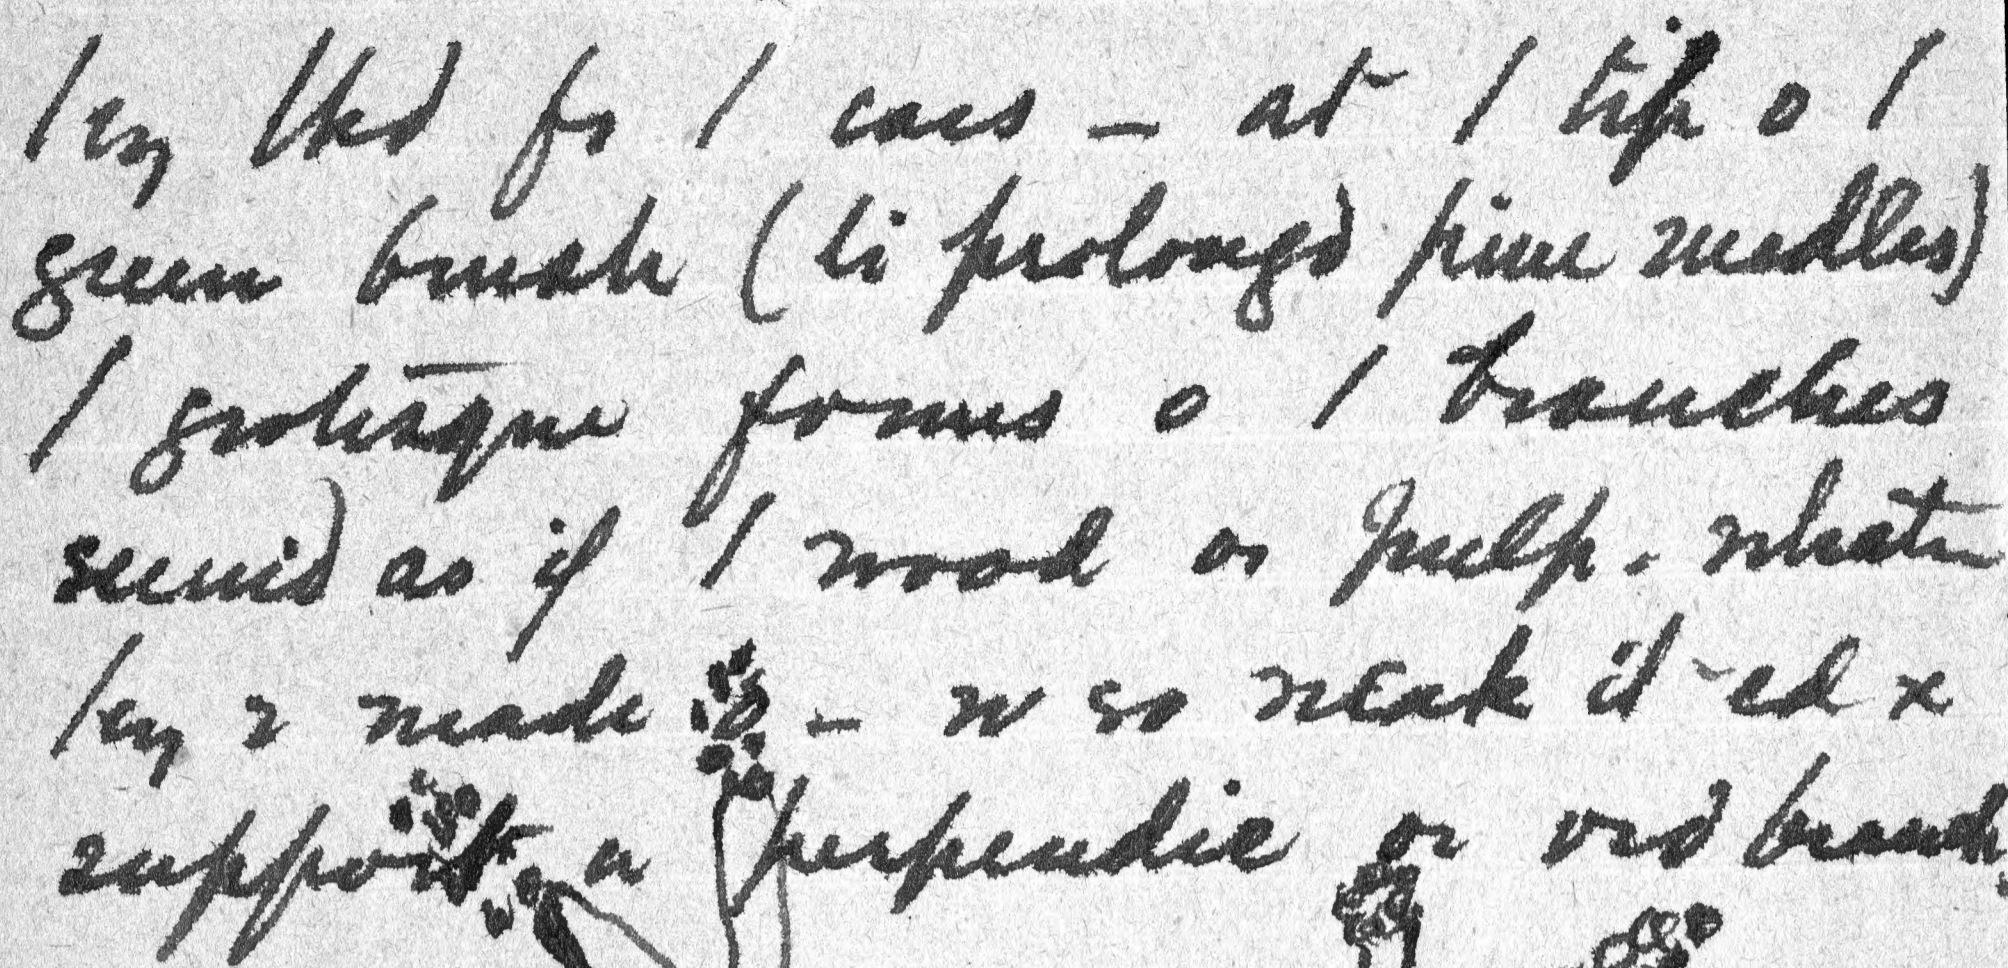 /ey lkd fr / cacs — at / tip o /
green brush (li prolongd pine needles)
/ grotesque forms o / branches
seemd as if / wood or pulp. whatr
/ey r made o — w so weak it cd x
support a perpendic or ord branch